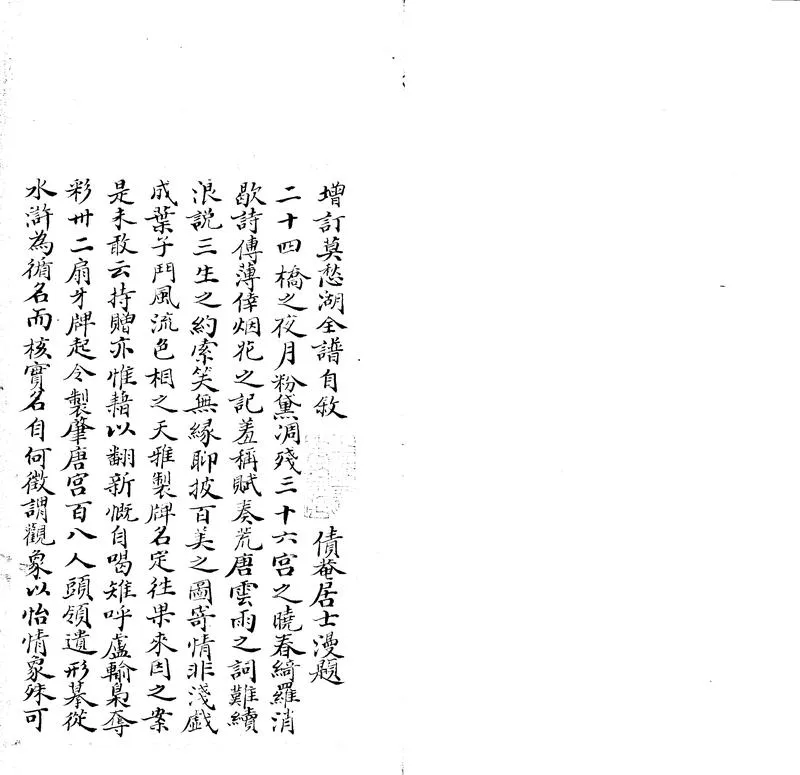 增訂莫愁湖全譜自敘　　債菴居士漫題
二十四橋之夜月粉黛凋殘三十六宮之曉春綺羅消
歇詩傳薄倖烟花之記羞稱賦奏荒唐雲雨之詞難續
浪說三生之約索笑無緣聊披百美之圖寄情非淺戲
成葉子鬥風流色相之天雅製牌名定往果來因之案
是未敢云持贈亦惟藉以翻新慨自喝雉呼盧輸梟奪
彩卅二扇牙牌起令製肇唐宮百八人頭領遺形摹從
水滸為循名而核實名自何徵謂觀象以怡情象殊可